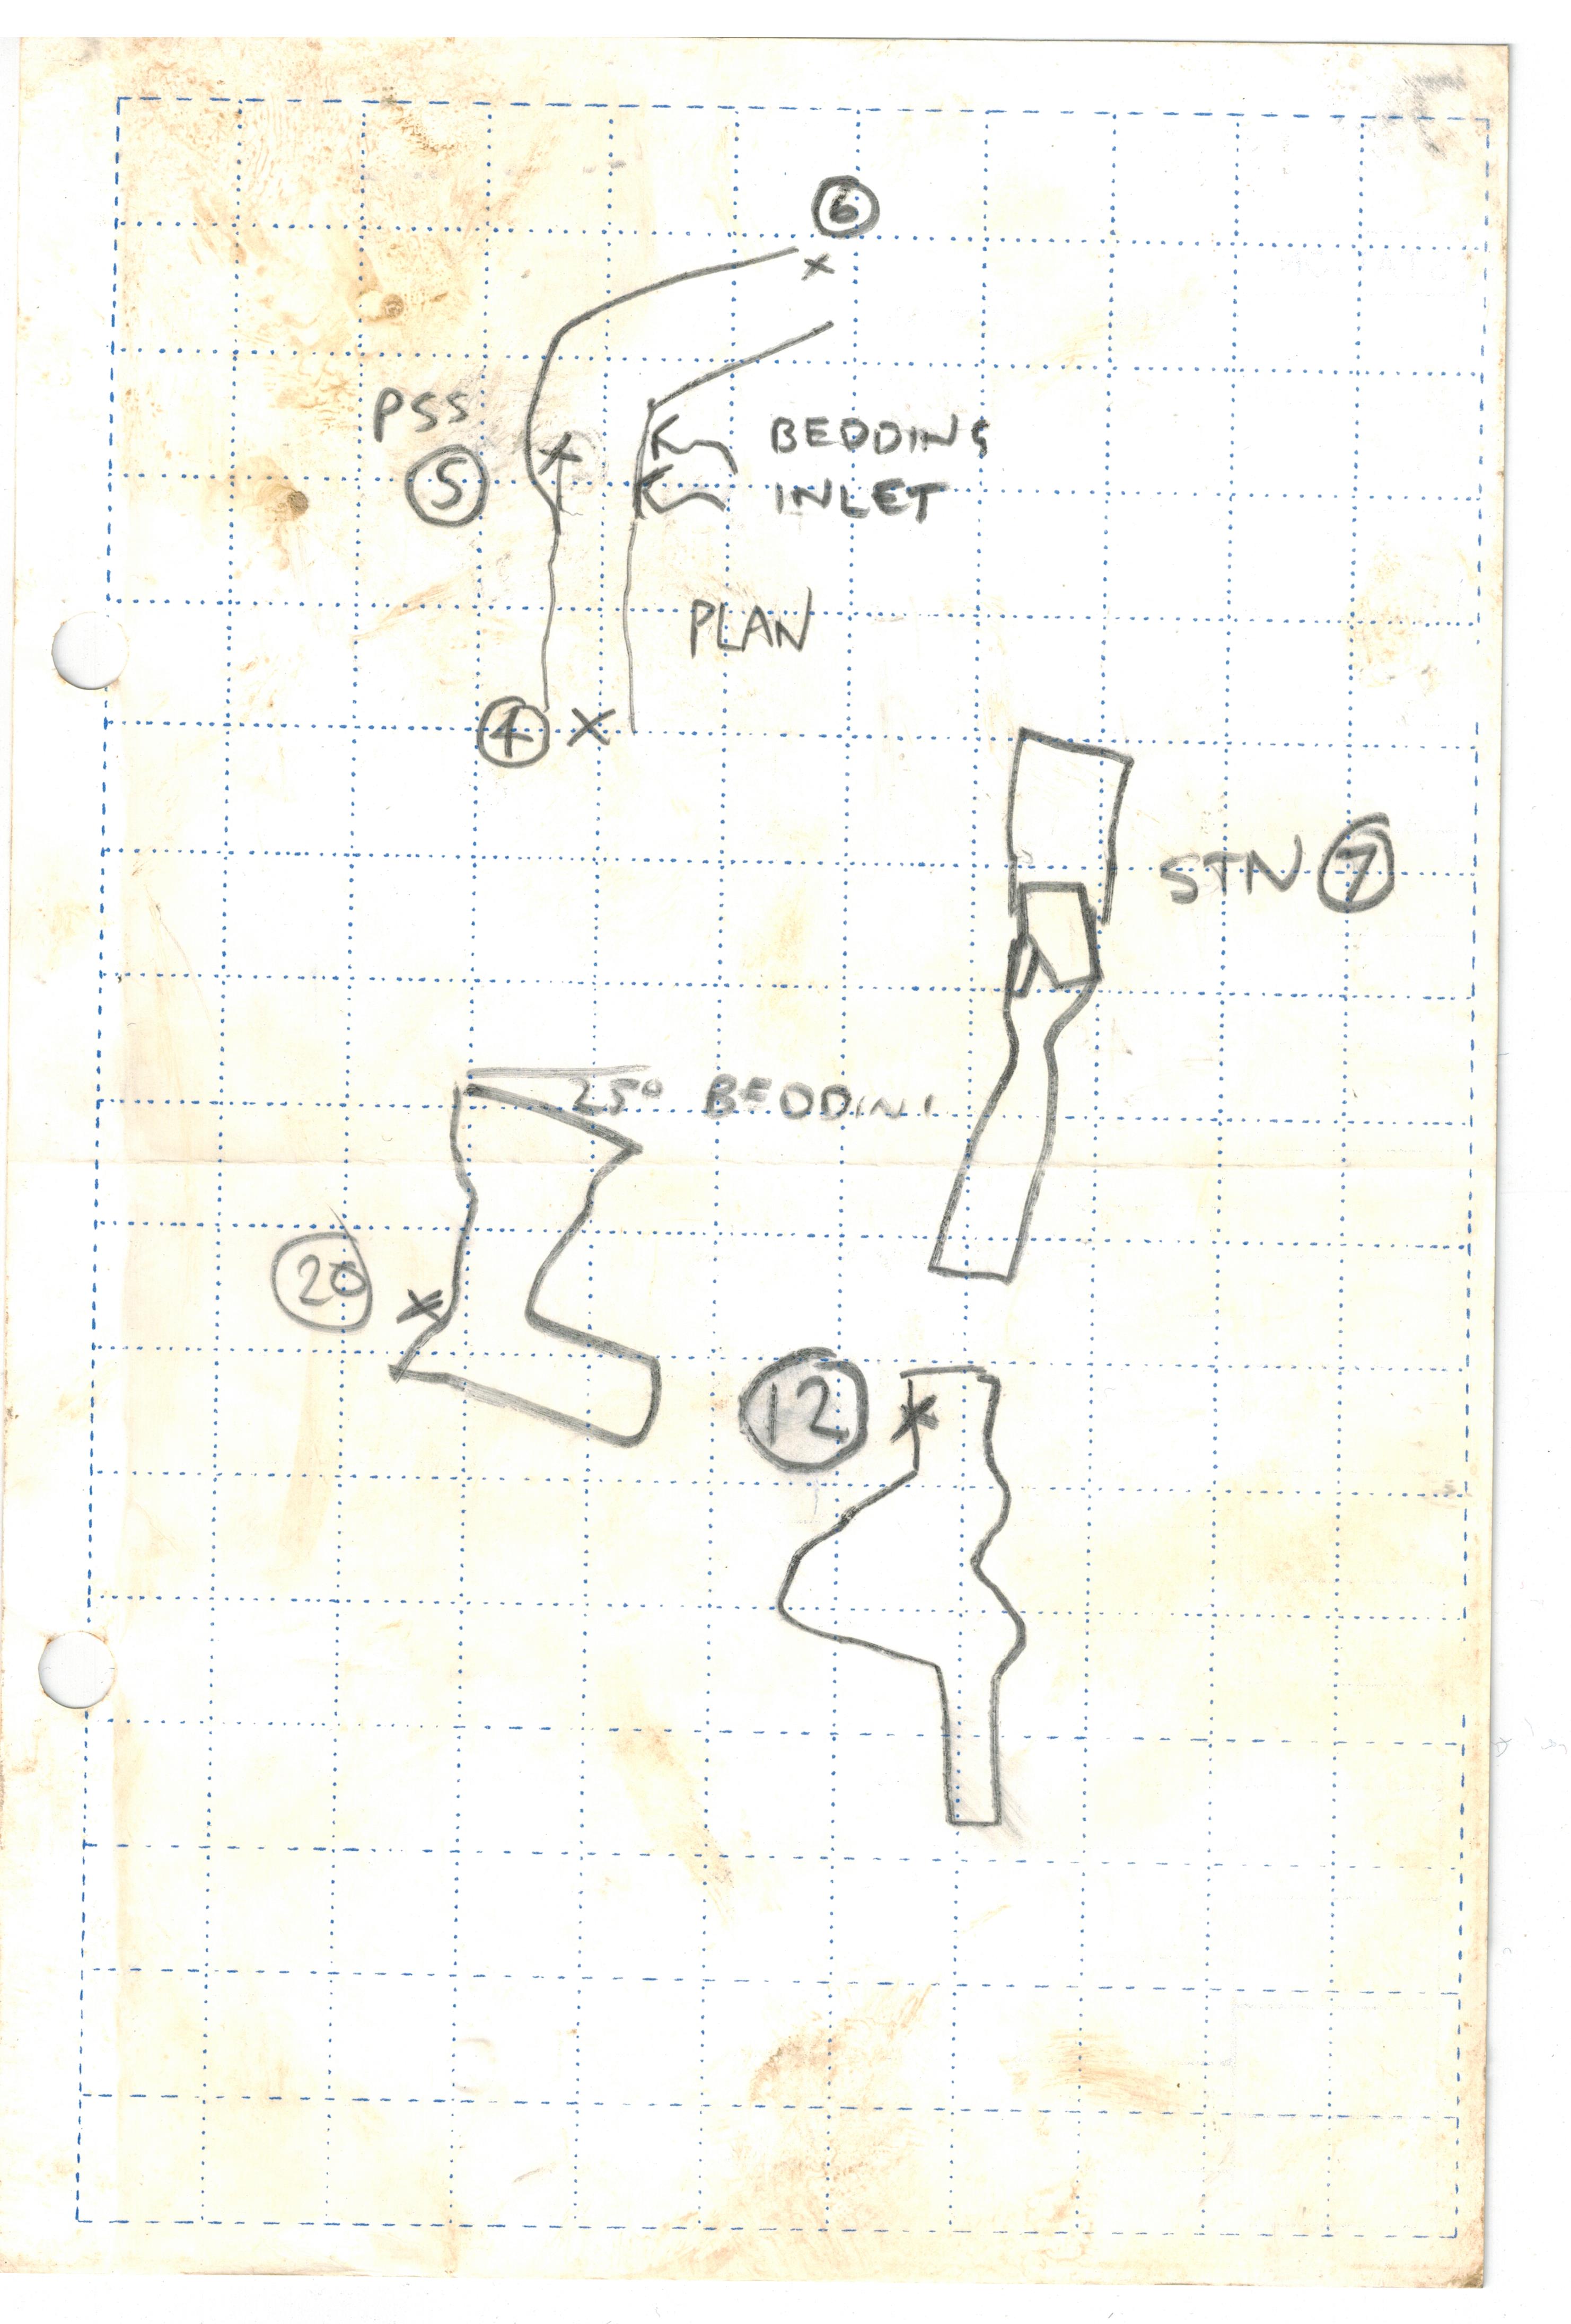 6
PSS
5
BEDDING
INLET
PLAN
4
STN 7
25° BEDDIN
20
12